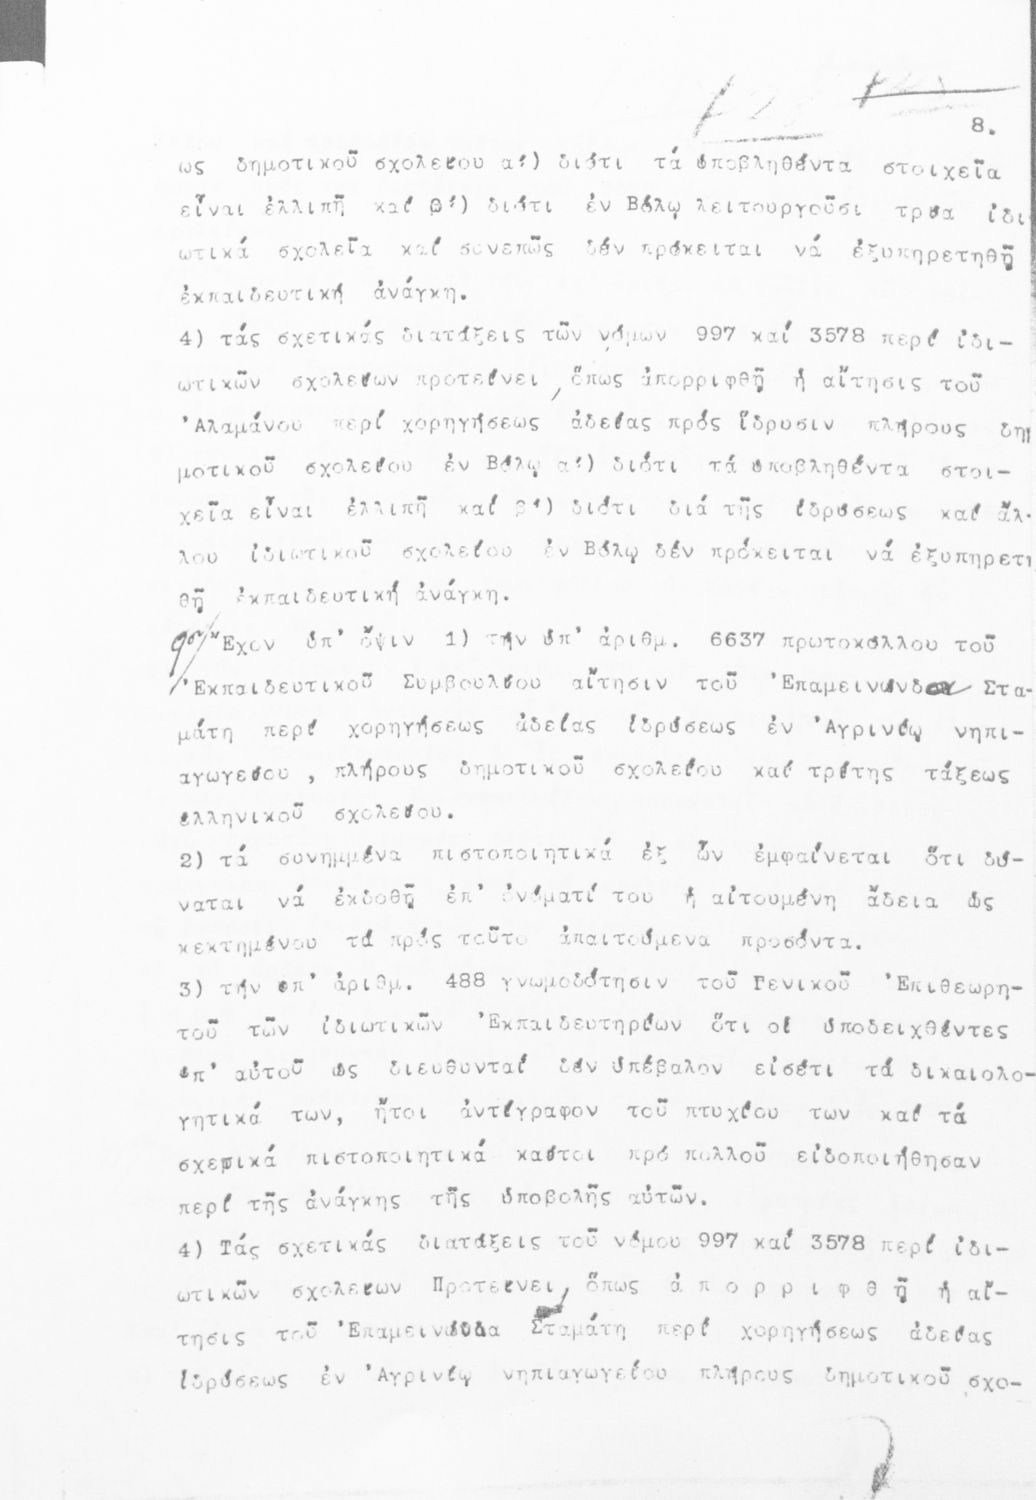 8.
ως δημοτικοῦ σχολείου α') διότι τά ὑποβληθέντα στοιχεῖα
εἶναι ἐλλιπῆ καί β') διότι ἐν Βόλῳ λειτουργοῦσι τρία ἰδι
ωτικά σχολεῖα καί συνεπῶς δέν πρόκειται νά ἐξυπηρετηθῇ
ἐκπαιδευτική ἀνάγκη.
4) τάς σχετικάς διατάξεις τῶν νόμων 997 καί 3578 περί ἰδι-
ωτικῶν σχολείων προτείνει, ὅπως ἀπορριφθῇ ἡ αἴτησις τοῦ
'Αλαμάνου περί χορηγήσεως ἀδείας πρός ἵδρυσιν πλήρους δη
μοτικοῦ σχολείου ἐν Βόλῳ α') διότι τά ὑποβληθέντα στοι-
χεῖα εἶναι ἐλλιπῆ καί β') διότι διά τῆς ἱδρύσεως καί ἄλ-
λου ἰδιωτικοῦ σχολείου ἐν Βόλῳ δέν πρόκειται νά ἐξυπηρετη
θῇ ἐκπαιδευτική ἀνάγκη.
"Εχον ὑπ' ὄψιν 1) τήν ὑπ' ἀριθμ. 6637 πρωτοκόλλου τοῦ
'Εκπαιδευτικοῦ Συμβουλίου αἴτησιν τοῦ 'Επαμεινώνδα Στα-
μάτη περί χορηγήσεως ἀδείας ἱδρύσεως ἐν 'Αγρινίῳ νηπι-
αγωγείου, πλήρους δημοτικοῦ σχολείου καί τρίτης τάξεως
ἑλληνικοῦ σχολείου.
2) τά συνημμένα πιστοποιητικά ἐξ ὧν ἐμφαίνεται ὅτι δύ-
ναται νά ἐκδοθῇ ἐπ' ὀνόματί του ἡ αἰτουμένη ἄδεια ὡς
κεκτημένου τά πρός τοῦτο ἀπαιτούμενα προσόντα.
3) τήν ὑπ' ἀριθμ. 488 γνωμοδότησιν τοῦ Γενικοῦ 'Επιθεωρη-
τοῦ τῶν ἰδιωτικῶν 'Εκπαιδευτηρίων ὅτι οἱ ὑποδειχθέντες
ὑπ' αὐτοῦ ὡς διευθυνταί δέν ὑπέβαλον εἰσέτι τά δικαιολο-
γητικά των, ἤτοι ἀντίγραφον τοῦ πτυχίου των καί τά
σχετικά πιστοποιητικά καίτοι πρό πολλοῦ εἰδοποιήθησαν
περί τῆς ἀνάγκης τῆς ὑποβολῆς αὐτῶν.
4) Τάς σχετικάς διατάξεις τοῦ νόμου 997 καί 3578 περί ἰδι-
ωτικῶν σχολείων Προτείνει, ὅπως ἀ π ο ρ ρ ι φ θ ῇ ἡ αἴ-
τησις τοῦ 'Επαμεινώνδα Σταμάτη περί χορηγήσεως ἀδείας
ἱδρύσεως ἐν 'Αγρινίῳ νηπιαγωγείου πλήρους δημοτικοῦ σχο-